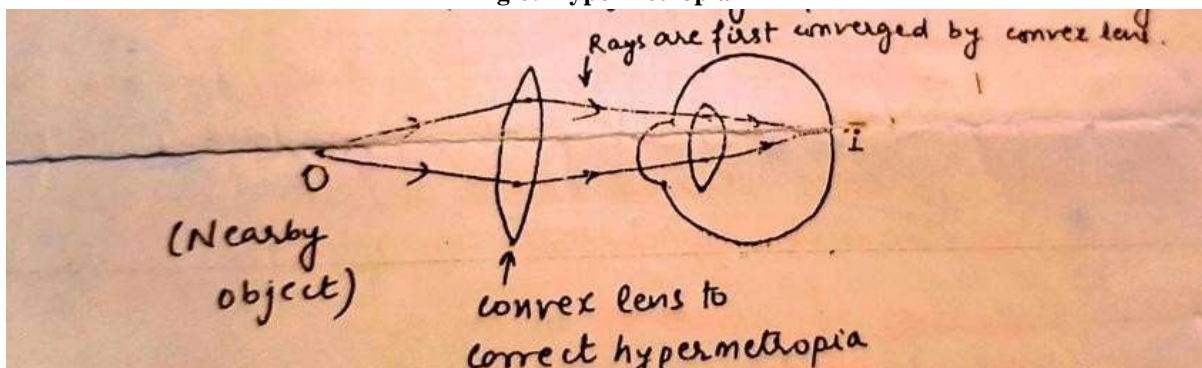 Rays are first converged by convex lens.
I
O
(Nearby
object)
convex lens to
correct hypermetropia